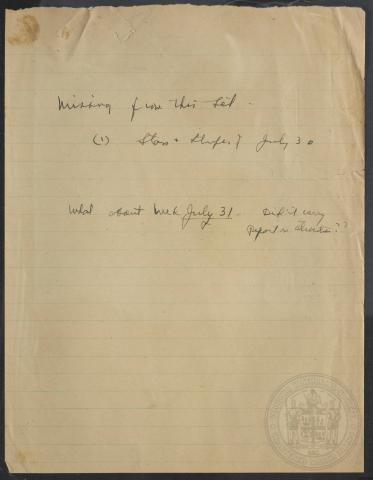 Missing from this set.
(1) Stars & Stripes of July 30
What about Week July 31. Didn't carry
Report on